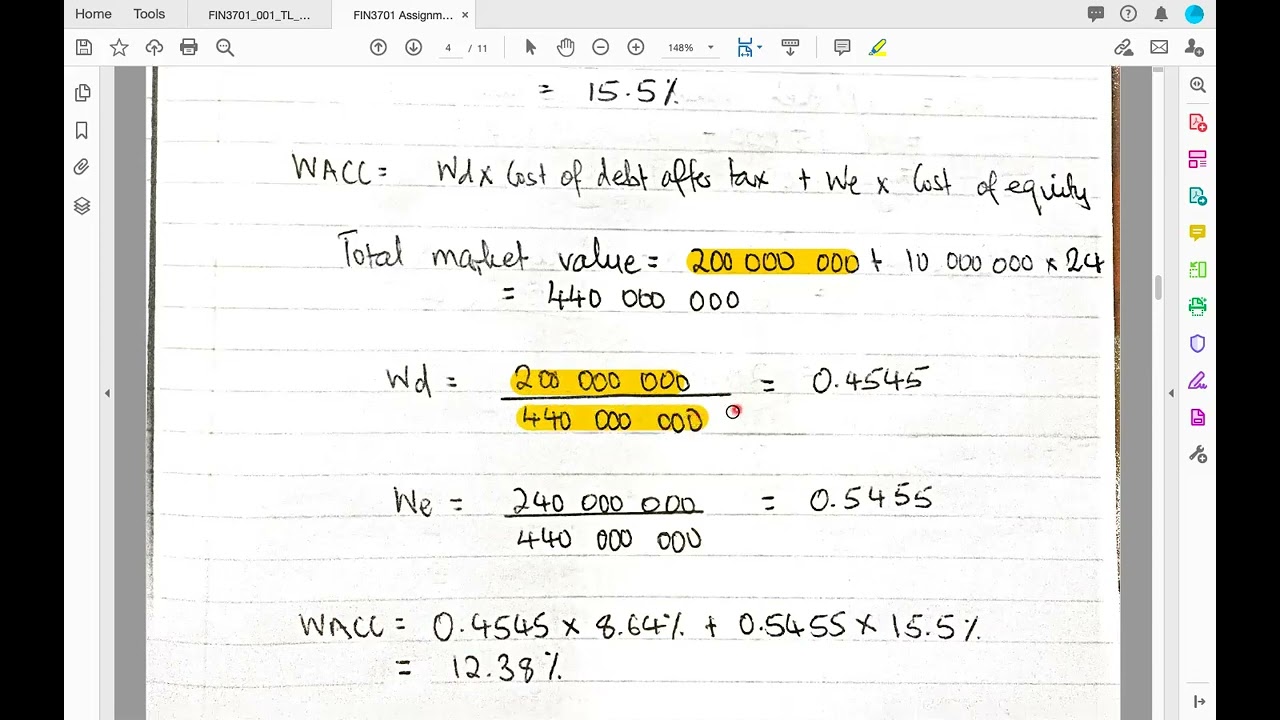 Home Tools FIN3701_001_TL_... FIN3701 Assignm... ×
4 / 11 148%
= 15.5%
WACC = Wd x Cost of debt after tax + We x Cost of equity
Total market value = 200 000 000 + 10 000 000 x 24
= 440 000 000
Wd = 200 000 000 = 0.4545
440 000 000
We = 240 000 000 = 0.5455
440 000 000
WACC = 0.4545 x 8.64% + 0.5455 x 15.5%
= 12.38%